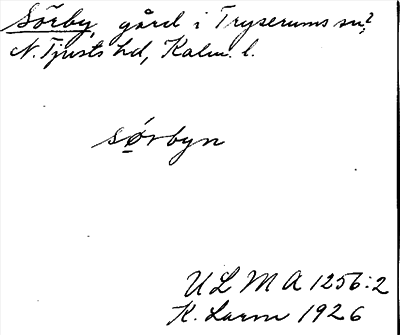 Sörby, gård i Tryserums sn?,
N. Tjusts hd, Kalm. l.
sørbyn
ULMA 1256:2
K. Larm 1926